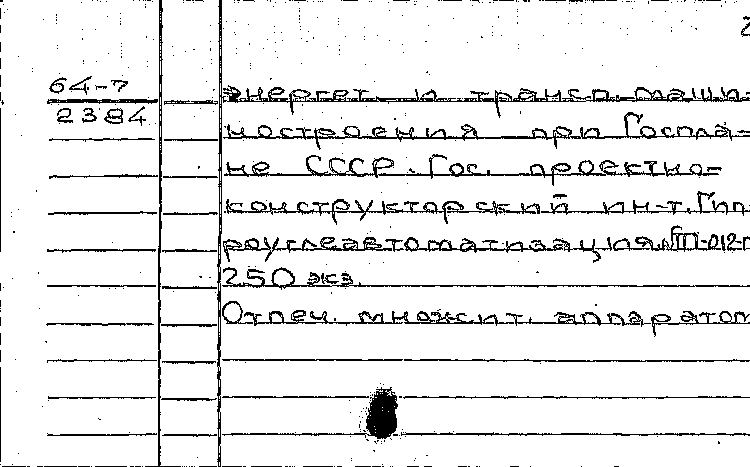 64-7
2384
энергет. и трансп. маши-
ностроения при Госпла-
не СССР. Гос. проектно-
конструкторский ин-т. Гип-
роуглеавтоматизация.
250 экз.
Отпеч. множит. аппаратом